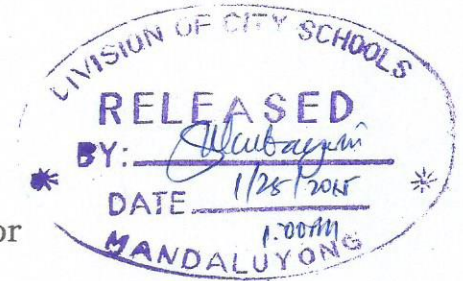 DIVISION OF CITY SCHOOLS
RELEASED
BY:
DATE 1/28/2015
1:00PM
MANDALUYONG
or